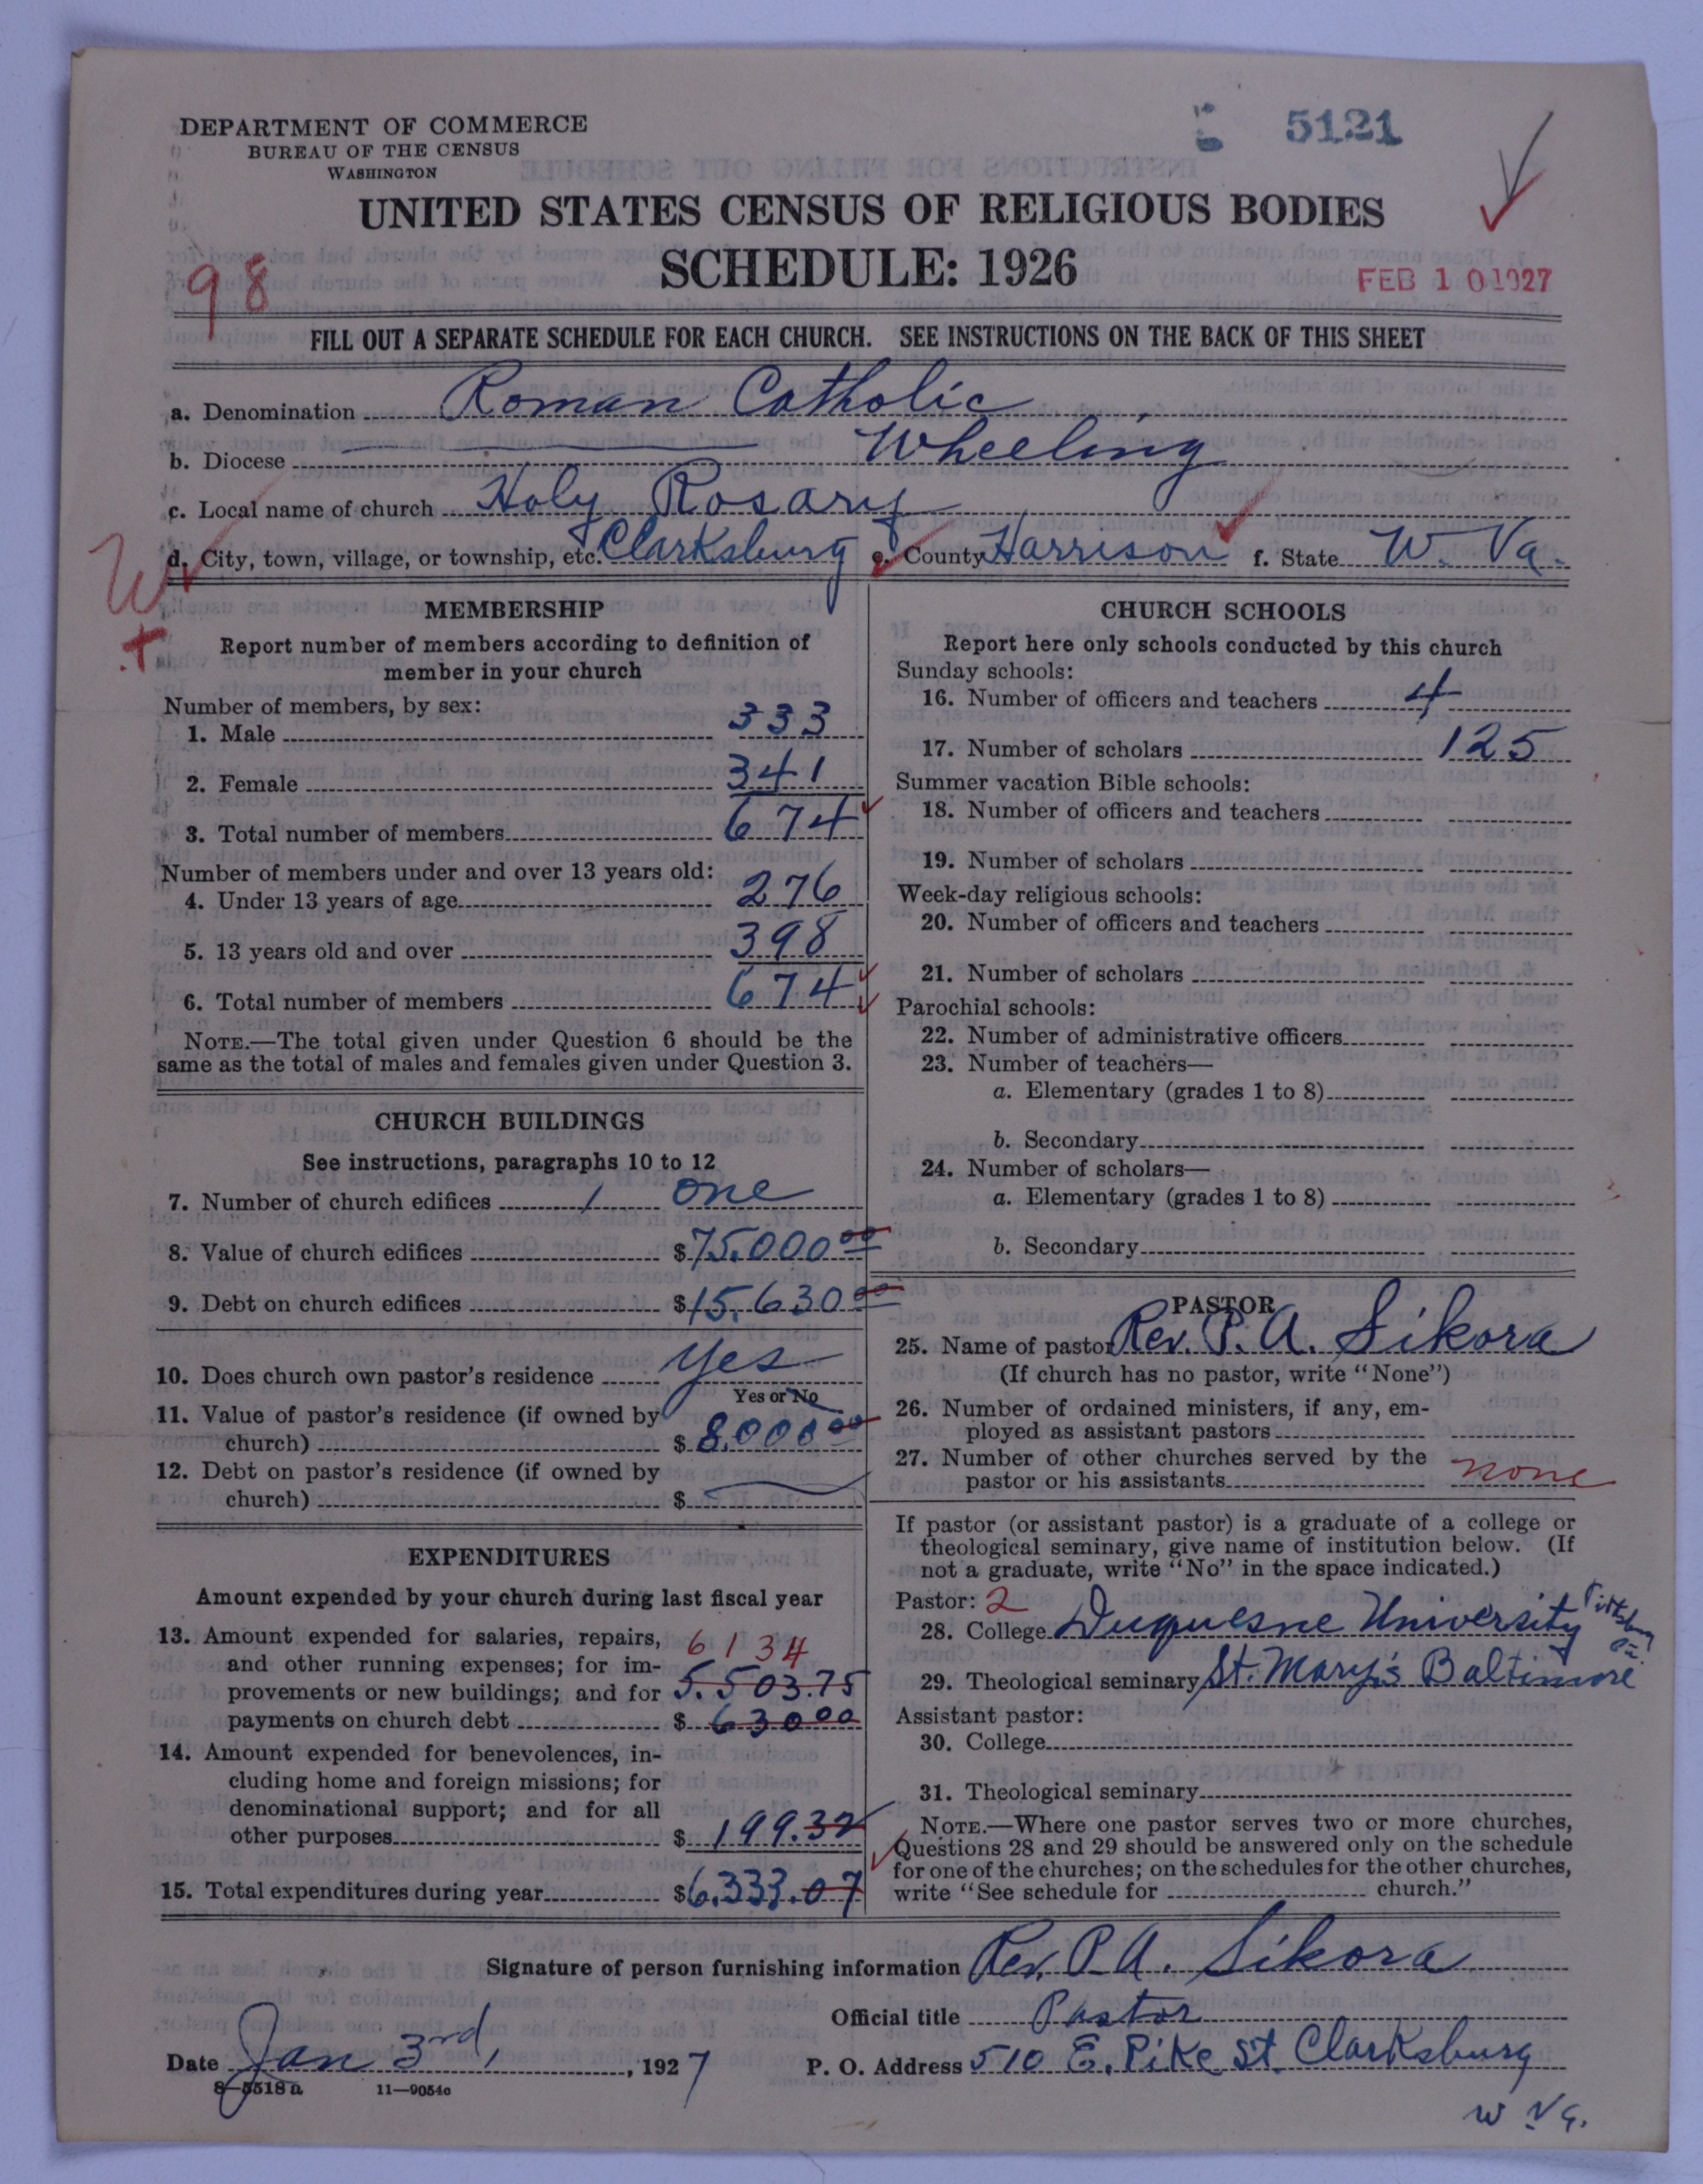 DEPARTMENT OF COMMERCE
BUREAU OF THE CENSUS
WASHINGTON
5121
UNITED STATES CENSUS OF RELIGIOUS BODIES
SCHEDULE: 1926
98
FEB 10 1927
FILL OUT A SEPARATE SCHEDULE FOR EACH CHURCH. SEE INSTRUCTIONS ON THE BACK OF THIS SHEET
a. Denomination Roman Catholic
b. Diocese Wheeling
c. Local name of church Holy Rosary
d. City, town, village, or township, etc. Clarksburg e. County Harrison f. State W. Va.
W
+
MEMBERSHIP
Report number of members according to definition of
member in your church
Number of members, by sex:
1. Male 333
2. Female 341
3. Total number of members 674
Number of members under and over 13 years old:
4. Under 13 years of age 276
5. 13 years old and over 398
6. Total number of members 674
NOTE.—The total given under Question 6 should be the
same as the total of males and females given under Question 3.
CHURCH BUILDINGS
See instructions, paragraphs 10 to 12
7. Number of church edifices 1 one
8. Value of church edifices $75.000 00
9. Debt on church edifices $15.630 00
10. Does church own pastor's residence Yes
Yes or No
11. Value of pastor's residence (if owned by
church) $ 8.000 00
12. Debt on pastor's residence (if owned by
church) $
EXPENDITURES
Amount expended by your church during last fiscal year
13. Amount expended for salaries, repairs, 6134
and other running expenses; for im-
provements or new buildings; and for 5.503.75
payments on church debt $ 630 00
14. Amount expended for benevolences, in-
cluding home and foreign missions; for
denominational support; and for all
other purposes $ 199.32
15. Total expenditures during year $6.333.07
CHURCH SCHOOLS
Report here only schools conducted by this church
Sunday schools:
16. Number of officers and teachers 4
17. Number of scholars 125
Summer vacation Bible schools:
18. Number of officers and teachers
19. Number of scholars
Week-day religious schools:
20. Number of officers and teachers
21. Number of scholars
Parochial schools:
22. Number of administrative officers
23. Number of teachers—
a. Elementary (grades 1 to 8)
b. Secondary
24. Number of scholars—
a. Elementary (grades 1 to 8)
b. Secondary
PASTOR
25. Name of pastor Rev. P. A. Sikora
(If church has no pastor, write "None")
26. Number of ordained ministers, if any, em-
ployed as assistant pastors
27. Number of other churches served by the
pastor or his assistants none
If pastor (or assistant pastor) is a graduate of a college or
theological seminary, give name of institution below. (If
not a graduate, write "No" in the space indicated.)
Pastor: 2
28. College Duquesne University Pittsburg Pa.
29. Theological seminary St. Mary's Baltimore
Assistant pastor:
30. College
31. Theological seminary
NOTE.—Where one pastor serves two or more churches,
Questions 28 and 29 should be answered only on the schedule
for one of the churches; on the schedules for the other churches,
write "See schedule for church."
Signature of person furnishing information Rev. P. A. Sikora
Official title Pastor
Date Jan 3rd, 1927 P. O. Address 510 E. Pike St. Clarksburg
W Va.
8—5518 a 11—9054c